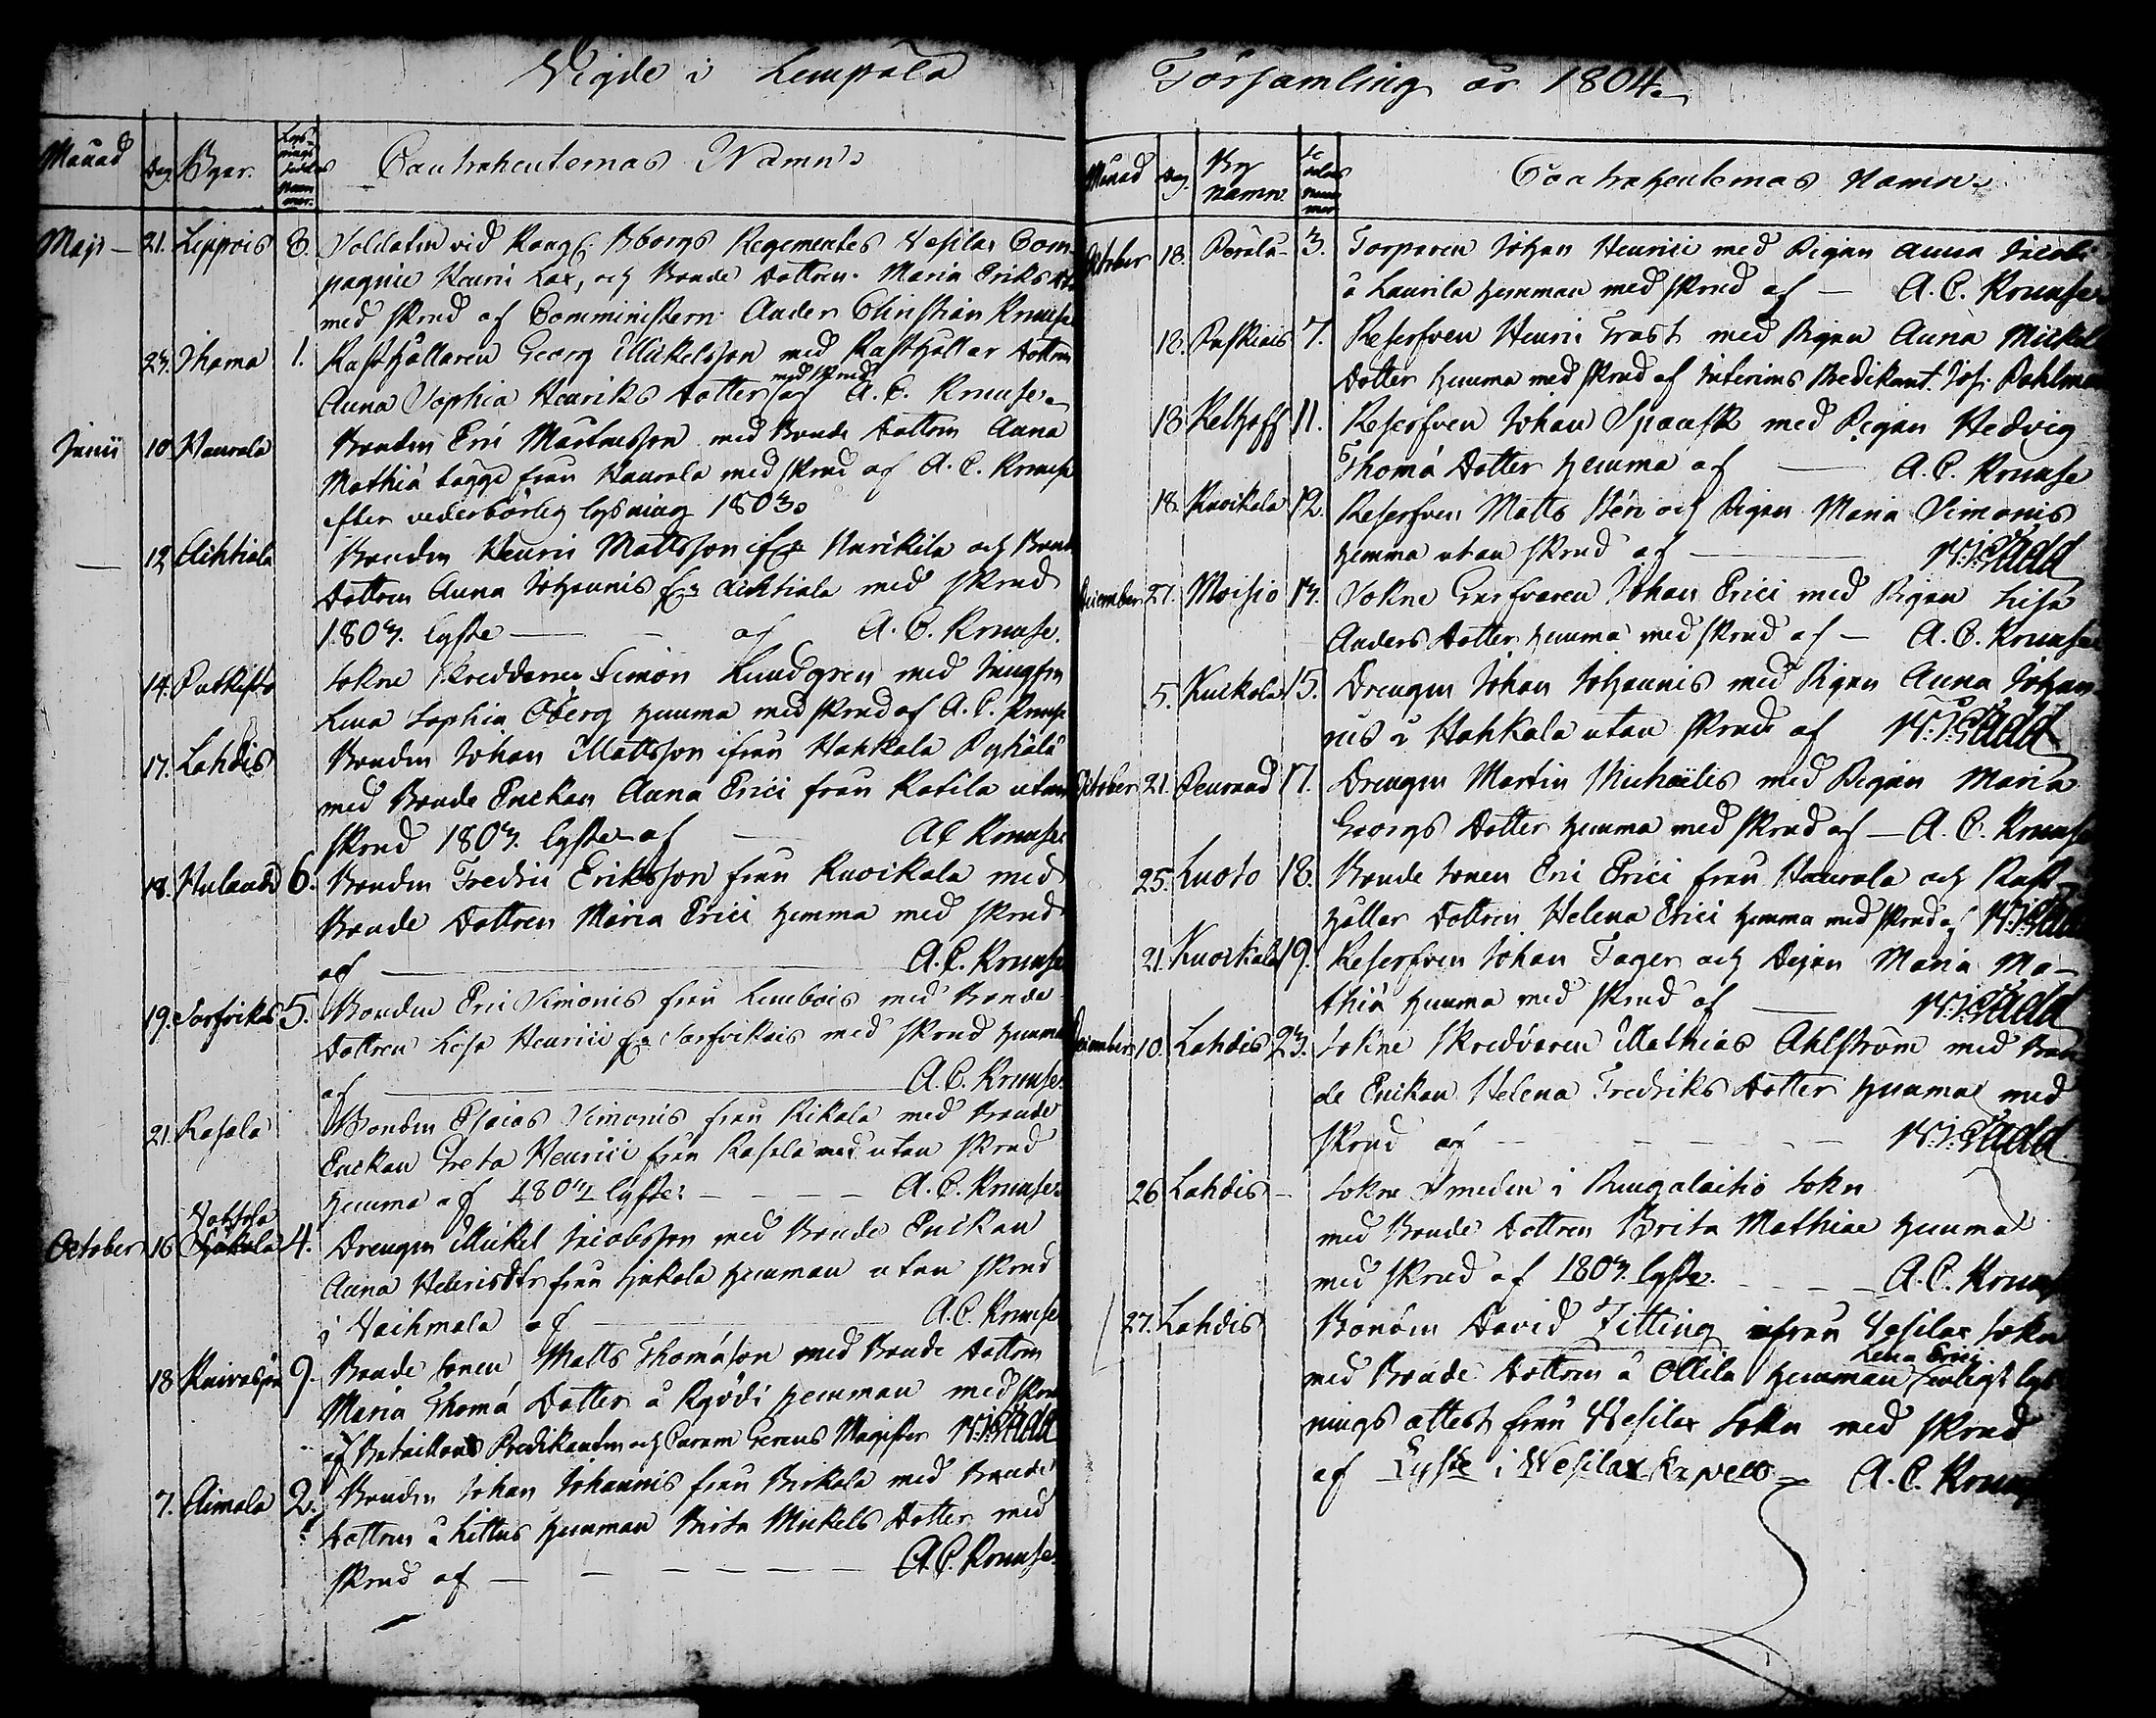 Vigde i Lempälä
Månad Dag. Byar. Lysnings sedelns nummer. Contrahenternas Namn.
Maji 21. Lippois 8. Soldaten vid Kongl. Bborgs Regementes Vesilax Com-
pagnie Henric Lax, och Bonde Dottren Maria Eriks Dr
med skrud af Comministern Anders Christian Krause
23. Ihama 1. Rusthållaren Georg Mickelsson med Rusthållar Dottren
med skrud
Anna Sophia Henriks Dotter af A. C. Krause.
Junii 10. Haurala Bonden Eric Mårtensson med Bonde Dottren Anna
Mathiæ från Haurala med skrud af A. C. Krause
efter vederbörlig lysning 1803.
12 Aihtiala Bonden Henric Mattsson ifrån Nurikila och Bonde
Dottren Anna Johannis från Aihtiala med skrud
1803. lyste af A. C. Krause.
14. Putkisto Sokne Skreddaren Simon Lundgren med Jungfru
Lena Sophia Öberg hemma med skrud af A. C. Krause
17. Lahdis Bonden Johan Mattsson ifrån Hahkala Pyhälä
med Bonde Enckan Anna Erici från Katila utan
skrud 1803. lyste af A C Krause.
18. Hulaud 6. Bonden Fredric Eriksson från Kuoikala med
Bonde Dottren Maria Erici hemma med skrud
af A. C. Krause
19. Sarfvikis 5. Bonden Eric Simonis från Lembois med Bonde
Dottren Lisa Henrici från Sarfvikais med skrud hemma
af A. C. Krause.
21. Rasala Bonden Esaias Simonis från Rikala med Bonde
Enckan Greta Henrici från Rasala med utan skrud
hemma af 1803 lyste. A. C. Krause.
October 16 4. Drengen Mickel Jacobsson med Bonde Enckan
Anna Henrisdtr från Sjukala hemman utan skrud
i Vaihmala af A. C. Krause
18 Kuivaspä 9. Bonde Sonen Matts Thomæson med Bonde Dottren
Maria Thomæ Dotter å Ryödi hemman med skrud
af Bataillons Predikanten och Curam Gerens Magister N. J. Gadd
7. Aimala 2. Bonden Johan Johannis från Birkala med Bonde
Dottren å Littus hemman Brita Mickels Dotter med
skrud af A. C. Krause.
Församling år 1804.
Månad Dag. By Namn. Sedelns nummer Contrahenternas Namn.
October 18. Perälä 3. Torparen Johan Henrici med Pigan Anna Jacobi
å Laurila hemman med skrud af A. C. Krause
18. Paskiais 7. Reserfven Henric Trast med Pigan Anna Mickels
Dotter hemma med skrud af Interims Predikant. Joh. Pohlman
18. Kelhoff 11. Reserfven Johan Spansk med Pigan Hedvig
Thomæ Dotter hemma af A. C. Krause
18. Kuoikala 12. Reserfven Matts Stén och Pigan Maria Simonis
hemma utan skrud af N. J. Gadd
December 27. Moisio 13. Sokne Garfvaren Johan Erici med Pigan Lisa
Anders Dotter hemma med skrud af A. C. Krause
5. Kuikola 15. Drengen Johan Johannis med Pigan Anna Johan-
nis å Hahkala utan skrud af N. J. Gadd
October 21. Penraud 17. Drengen Martin Michaëlis med Pigan Maria
Georgs Dotter hemma med skrud af A. C. Krause
25. Luoto 18. Bonde Sonen Eric Erici från Haurala och Rust-
hållar Dottren Helena Erici hemma med skrud af N. J. Gadd
21. Kuoikala 19. Reserfven Johan Fager och Pigan Maria Ma-
thiæ hemma med skrud af N. J. Gadd
December 10. Lahdis 23. Sokne Skreddaren Mathias Ahlström med Bon-
de Enckan Helena Fredriks Dotter hemma med
skrud af N. J. Gadd.
26. Lahdis Sokne Smeden i Kangalaihio Sokn
med Bonde Dottren Brita Mathiae hemma
med skrud af 1803. lyste. A. C. Krause
27. Lahdis Bonden David Fitting ifrån Vesilax Sokn
Lena Erici
med Bonde Dottren å Ollila hemman enligt lys-
nings attest från Vesilax Sokn med skrud
af Lyste i Wesilax Capell A. C. Krause